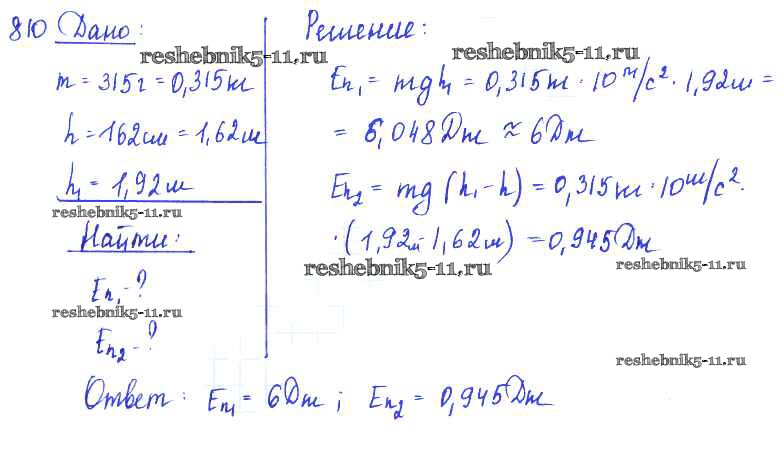 810 Дано:
reshebnik5-11.ru
m = 315г = 0,315кг
h = 162см = 1,62м
h₁ = 1,92м
reshebnik5-11.ru
Найти:
Eп₁ - ?
reshebnik5-11.ru
Eп₂ - ?
Решение:
reshebnik5-11.ru
Eп₁ = mgh₁ = 0,315кг · 10 м/с² · 1,92м =
= 6,048Дж ≈ 6Дж
Eп₂ = mg (h₁ - h) = 0,315кг · 10 м/с² ·
· (1,92м - 1,62м) = 0,945Дж
reshebnik5-11.ru
reshebnik5-11.ru
reshebnik5-11.ru
Ответ: Eп₁ = 6Дж ; Eп₂ = 0,945Дж